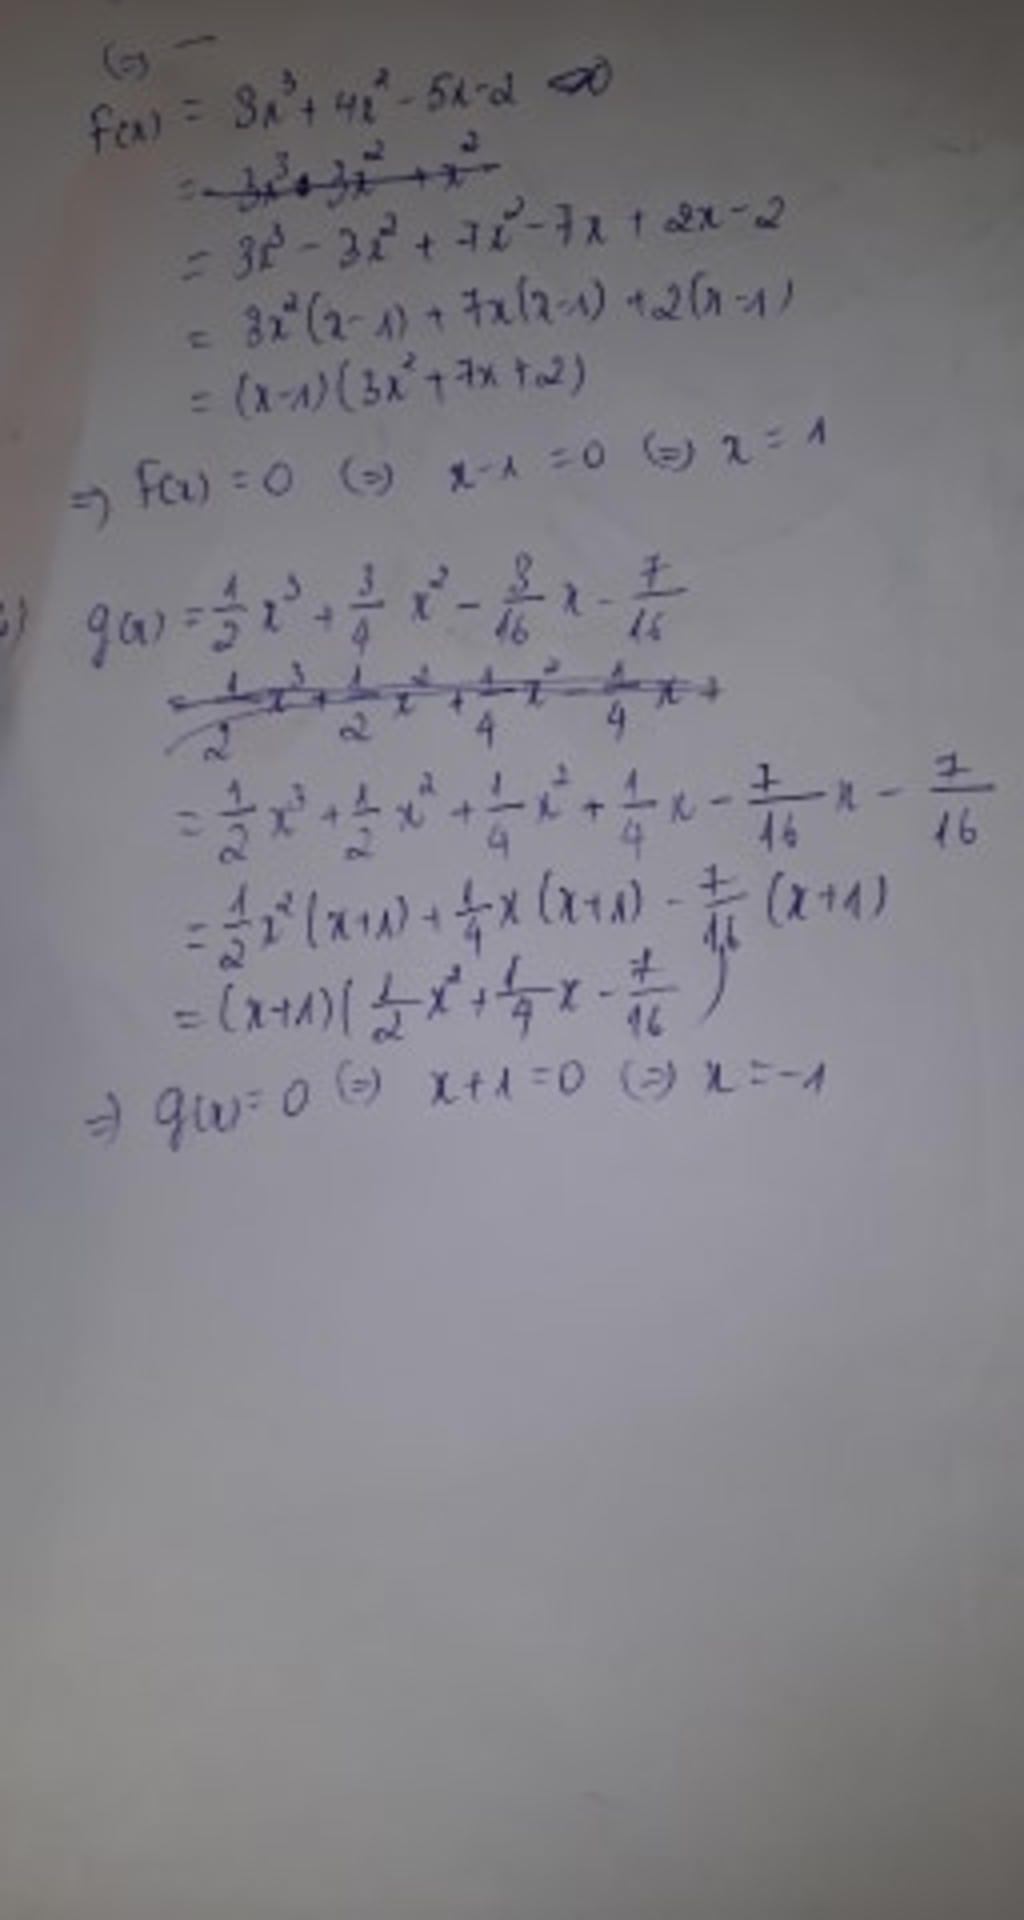 (=) —
f(x) = 3x³ + 4x² - 5x - 2
= 3x³ 3x² + x²
= 3x³ - 3x² + 7x² - 7x + 2x - 2
= 3x²(x-1) + 7x(x-1) + 2(x-1)
= (x-1)(3x² + 7x + 2)
=> f(x) = 0 (=) x-1 = 0 (=) x = 1
g(x) = 1/2 x³ + 3/4 x² - 3/16 x - 7/16
= 1/2 x³ + 1/2 x² + 1/4 x² - 1/4 x +
= 1/2 x³ + 1/2 x² + 1/4 x² + 1/4 x - 7/16 x - 7/16
= 1/2 x² (x+1) + 1/4 x (x+1) - 7/16 (x+1)
= (x+1)(1/2 x² + 1/4 x - 7/16)
=> g(x) = 0 (=) x+1 = 0 (=) x = -1